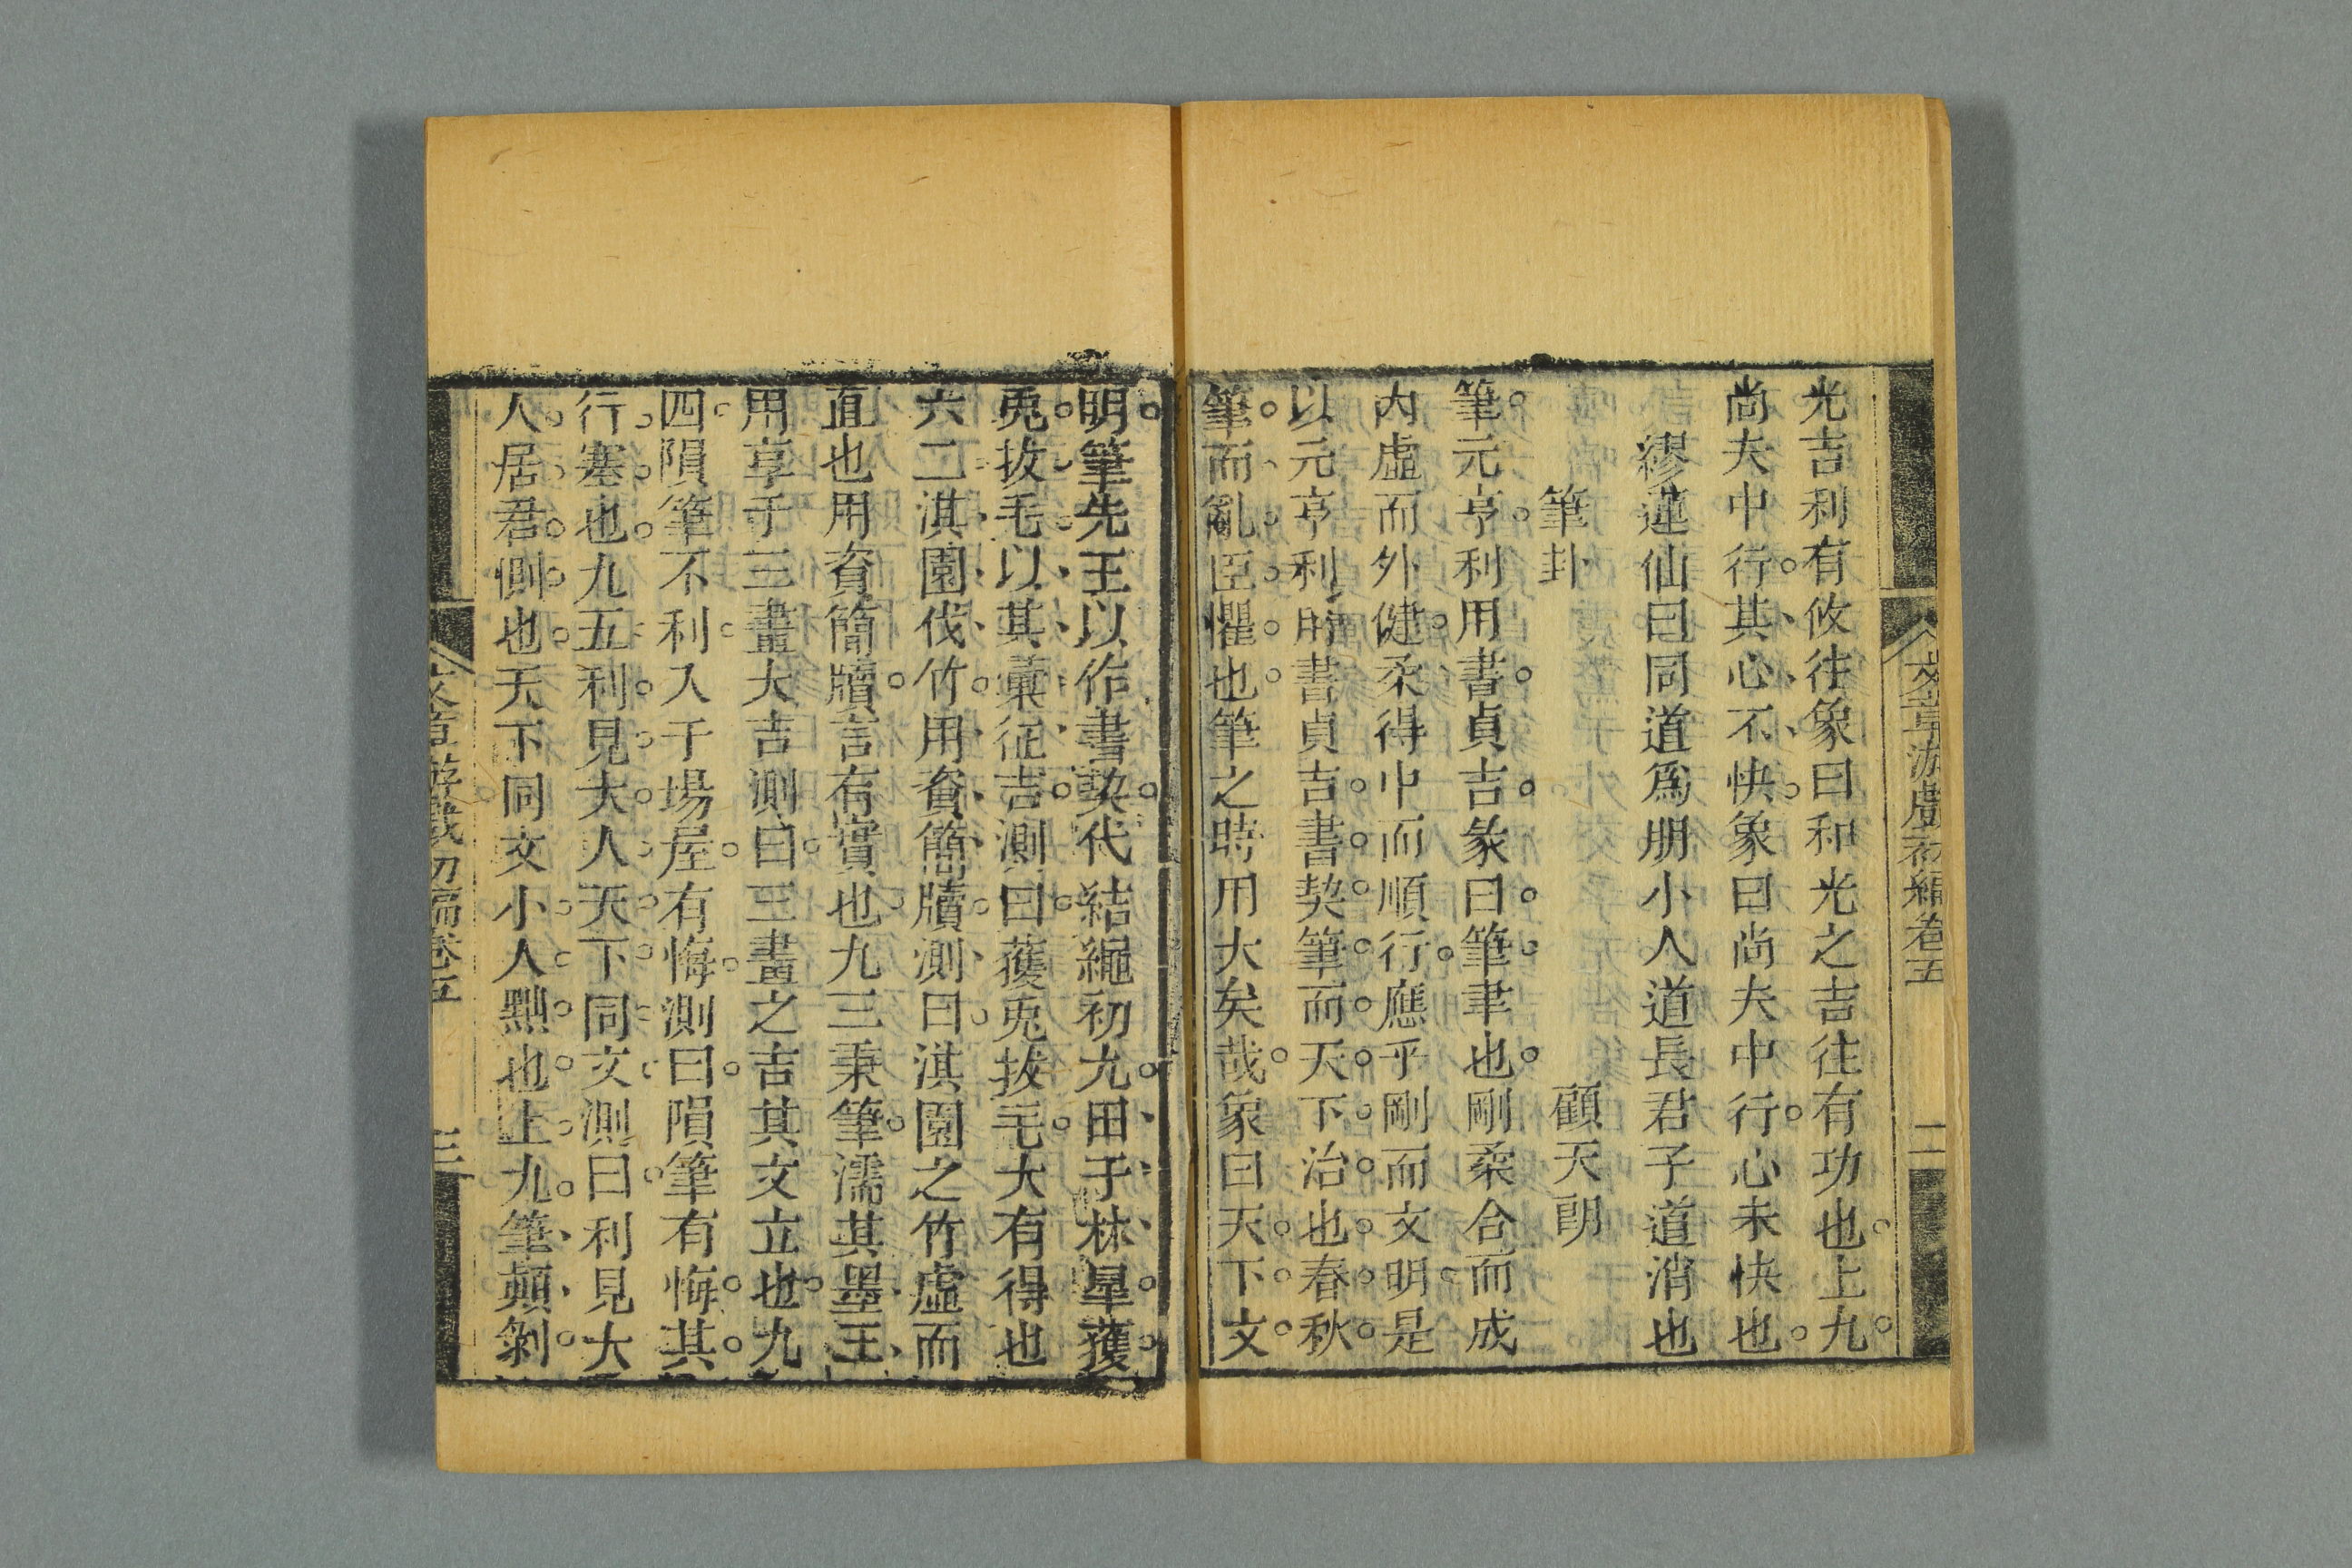 文章游戲初編卷五
二
光吉利有攸往象曰和光之吉往有功也上九
尚夫中行其心不快象曰尚夫中行心未快也
繆蓮仙曰同道爲朋小人道長君子道消也
筆卦
顧天朗
筆元亨利用書貞吉彖曰筆聿也剛柔合而成
內虛而外健柔得中而順行應乎剛而文明是
以元亨利用書貞吉書契筆而天下治也春秋
筆而亂臣懼也筆之時用大矣哉象曰天下文
明筆先王以作書契代結繩初九田于林犀獲
兎拔毛以其彙征吉測曰獲兎拔毛大有得也
六二淇園伐竹用資簡牘測曰淇園之竹虛而
直也用資簡牘言有實也九三秉筆濡其墨王
用享于三畫大吉測曰三畫之吉其文立也九
四隕筆不利入于場屋有悔測曰隕筆有悔其
行塞也九五利見大人天下同文測曰利見大
人居君側也天下同文小人黜也上九筆顛剝
文章游戲初編卷五
三